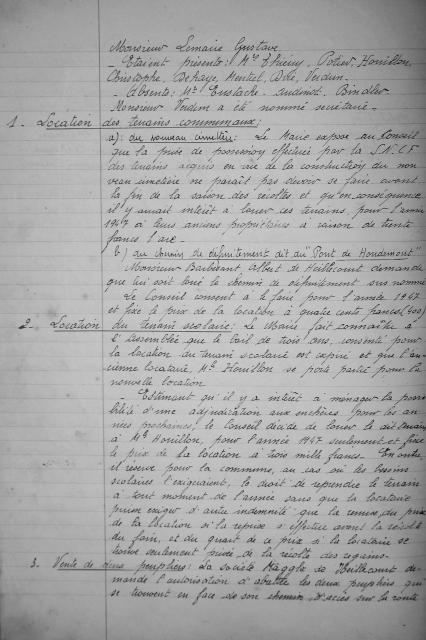 Monsieur Lemaire Gustave
- Etaient présents: Mrs Thieury, Potier, Houillon,
Christophe, Dehaye, Mentiel, Dole, Verdun.
- Absents: Mrs Eustache, Judenot, Bindler
Monsieur Verdun a été nommé secrétaire.
1. Location des terrains communaux:
a): du nouveau cimetière: Le Maire expose au Conseil
que la prise de possession effectuée par la S.N.C.F
des terrains acquis en vue de la construction du nou
veau cimetière ne paraît pas devoir se faire avant
la fin de la saison des récoltes et qu'en conséquence
il y aurait intérêt à louer ces terrains pour l'année
1947 à leurs anciens propriétaires à raison de trente
francs l'are.
b) du chemin de défruitement dit du "Pont de Hondemont"
Monsieur Barbesant Albert de Heillecourt demande
que lui soit loué le chemin de défruitement sus nommé
Le Conseil consent à le faire pour l'année 1947
et fixe le prix de la location à quatre cents francs (400)
2. Location du terrain scolaire: Le Maire fait connaître à
l'Assemblée que le bail de trois ans, consenti pour
la location du terrain scolaire est expiré et que l'an
cienne locataire, Mme Houillon se porte partie pour la
nouvelle location
- Estimant qu'il y a intérêt à ménager la possi
bilité d'une adjudication aux enchères pour les an
nées prochaines, le Conseil décide de louer le dit terrain
à Mme Houillon, pour l'année 1947 seulement et fixe
le prix de la location à trois mille francs. En outre
il réserve pour la commune, au cas où les besoins
scolaires l'exigeraient, le droit de reprendre le terrain
à tout moment de l'année sans que la locataire
puisse exiger d'autre indemnité que la remise du prix
de la location si la reprise s'effectue avant la récolte
du foin, et du quart de ce prix si la locataire se
trouve seulement privée de la récolte des regains.
3. Vente de deux peupliers: La société Maggle de Heillecourt de-
mande l'autorisation d'abattre les deux peupliers qui
se trouvent en face de son chemin d'accès sur la route